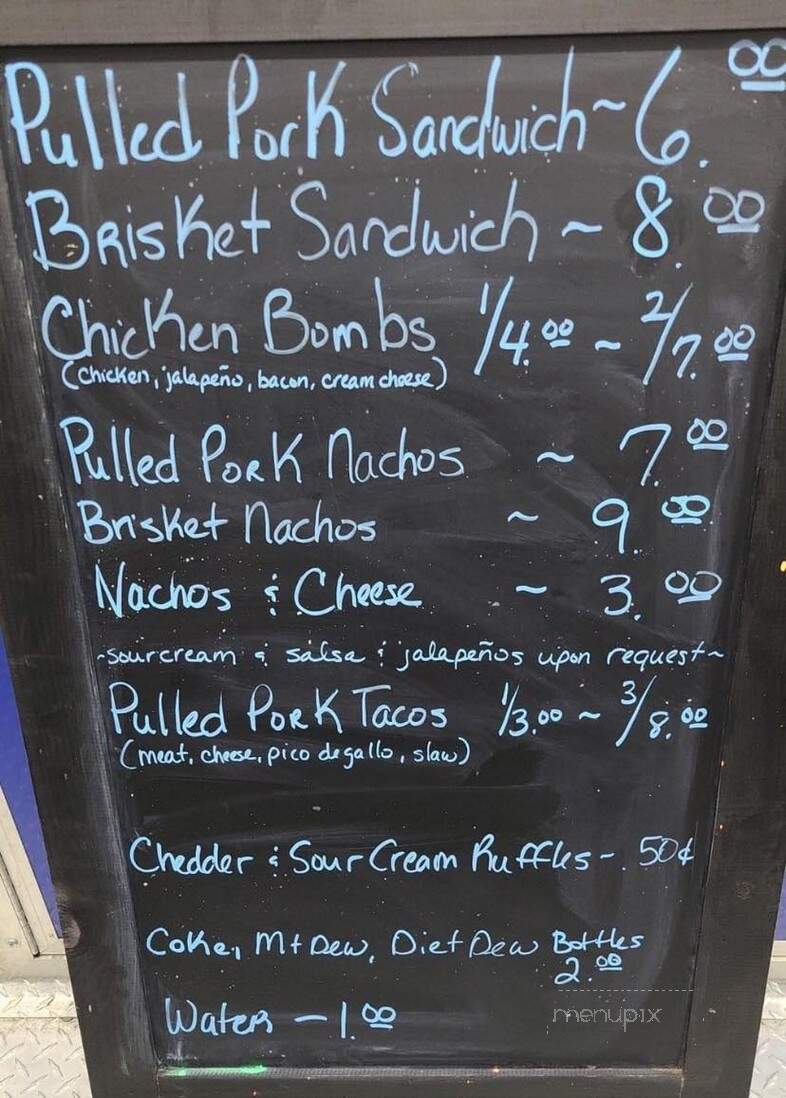 Pulled Pork Sandwich ~ 6.00
Brisket Sandwich ~ 8.00
Chicken Bombs 1/4.00 ~ 2/7.00
(chicken, jalapeño, bacon, cream cheese)
Pulled Pork Nachos ~ 7.00
Brisket Nachos ~ 9.00
Nachos & Cheese ~ 3.00
~sourcream & salsa & jalapeños upon request~
Pulled Pork Tacos 1/3.00 ~ 3/8.00
(meat, cheese, pico de gallo, slaw)
Chedder & Sour Cream Ruffles - .50¢
Coke, Mt Dew, Diet Dew Bottles
2.00
Water - 1.00
menupix